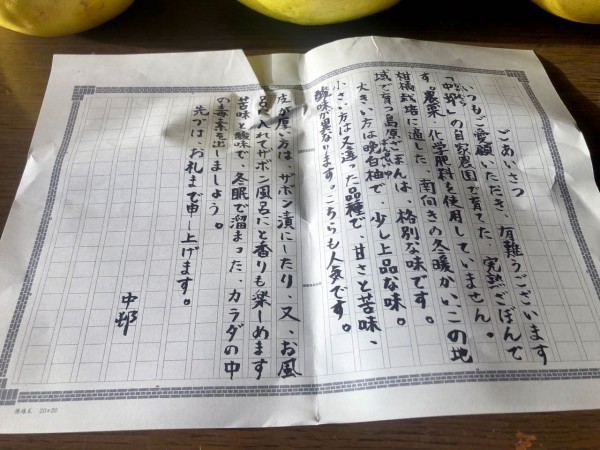 ごあいさつ
いつもご愛顧いただき、有難うございます
「中邨」の自家農園で育てた、完熟ざぼんで
す。農薬、化学肥料を使用していません。
柑橘栽培に適した、南向きの冬暖かい、この地
域で育つ島原ざぼんは、格別な味です。
大きい方は晩白柚で、少し上品な味。
小さい方は又違った品種で、甘さと苦味、
酸味が異なります。こちらも人気です。
皮が厚い方は、ザボン漬にしたり、又、お風
呂へ入れてザボン風呂にと香りも楽しめます
苦味と酸味で、冬眠で溜まった、カラダの中
の毒素を出しましょう。
先づは、お礼まで申し上げます。
中邨
20×20